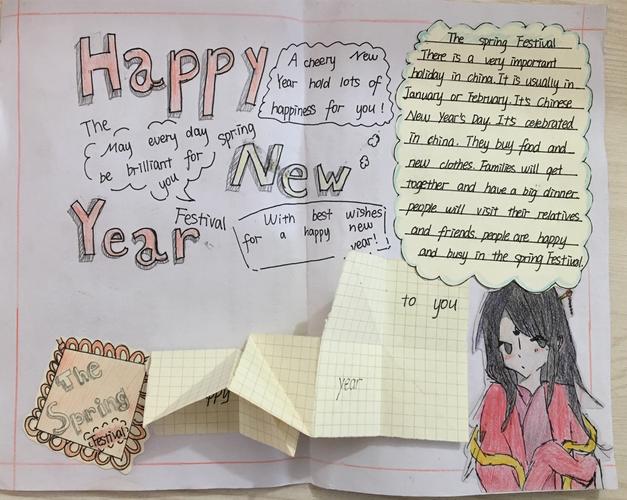 Happy
A cheery New
Year hold lots of
happiness for you!
The
spring
Festival
May every day
be brilliant for
you
New
Year
With best wishes
for a happy new
year!
The spring Festival
There is a very important
holiday in china. It is usually in
January or February. It's Chinese
New Year's Day. It's celebrated
in china. They buy food and
new clothes. Families will get
together and have a big dinner
people will visit their relatives
and friends. people are happy
and busy in the spring Festival.
The
Spring
Festival
year
to you